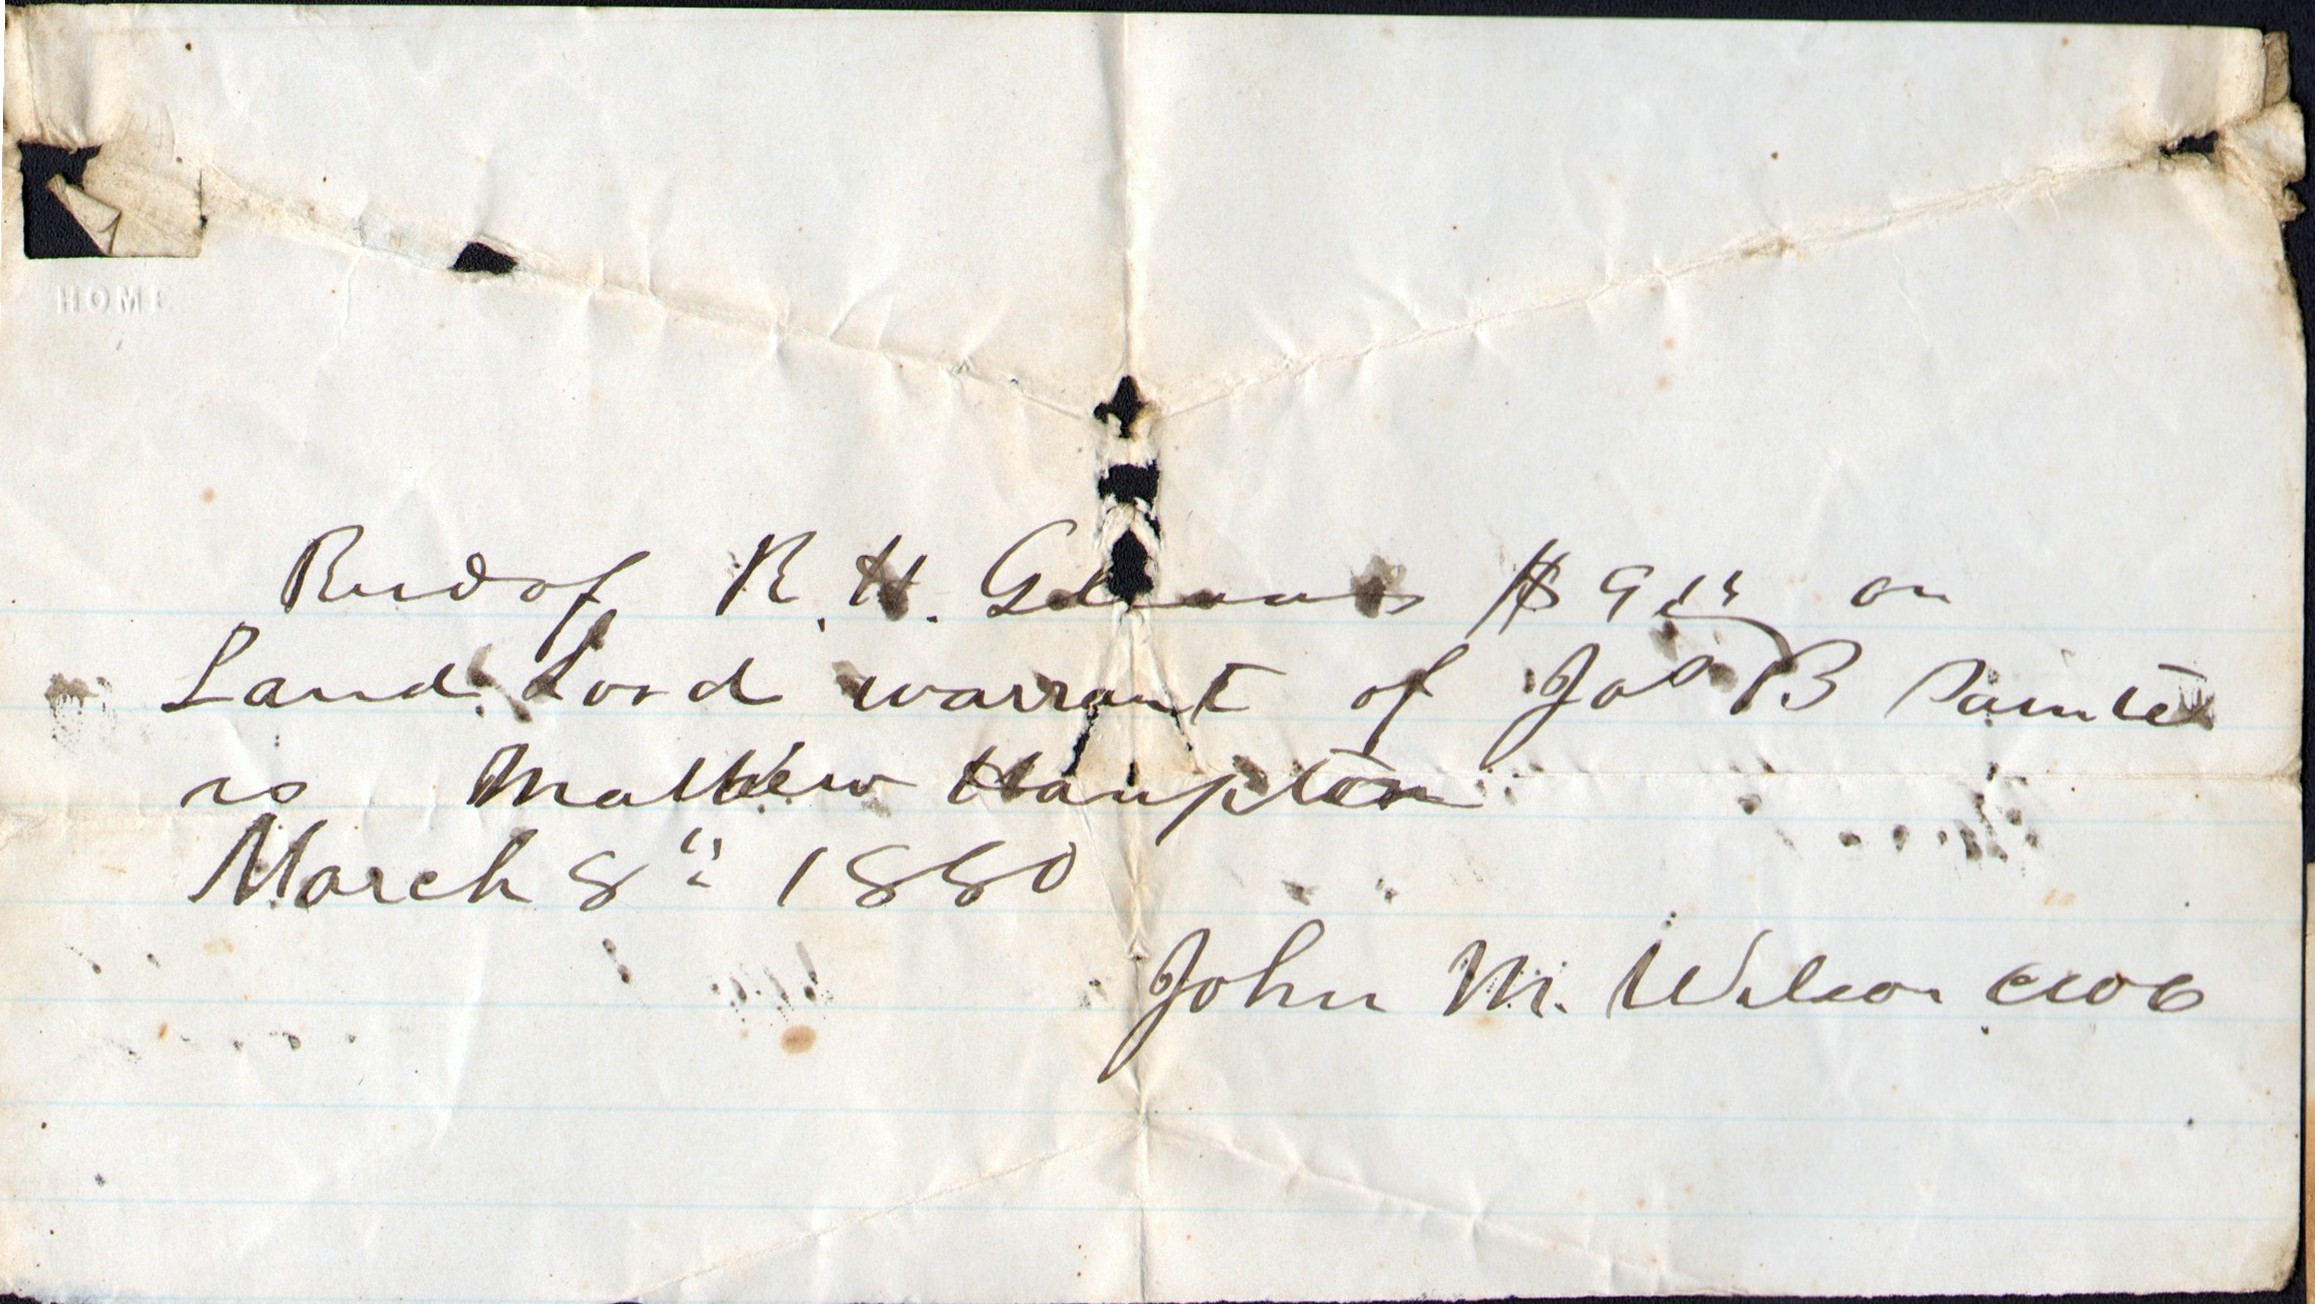 HOME
Recd of R. H. $9 on
Land Lord warrant of Jas B Painter
vs Mathew Hampton
March 8th 1880
John M. Wilson